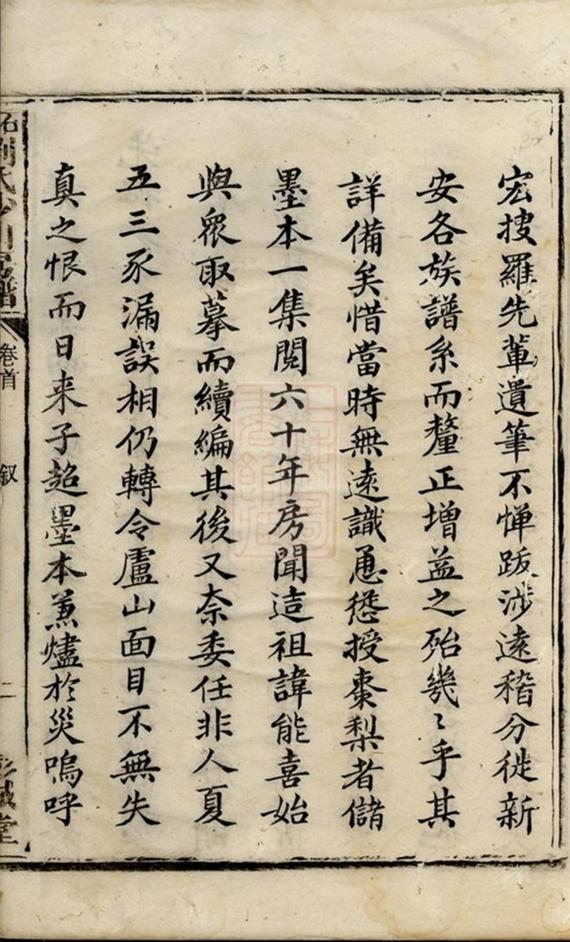 宏搜羅先軰遺筆不憚跋涉遠稽分徙新
安各族譜系而釐正增益之殆幾〻乎其
詳備矣惜當時無遠識慂授棗梨者儲
墨本一集閱六十年房聞造祖諱能喜始
與眾取摹而續編其後又柰委任非人夏
五三豕漏誤相仍轉令廬山面目不無失
真之恨而日来子超墨本蒸燼於災嗚呼
氏族譜
卷首
叙
二
彭城堂